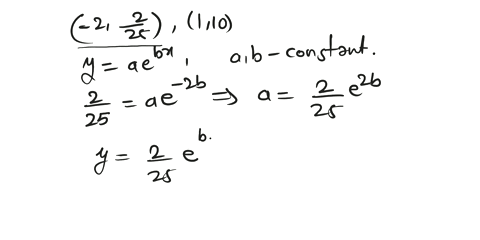 (-2, 2/25), (1,10)
y = ae^{bx}, a,b - constant.
2/25 = ae^{-2b} ⇒ a = 2/25 e^{2b}
y = 2/25 e^{b.}